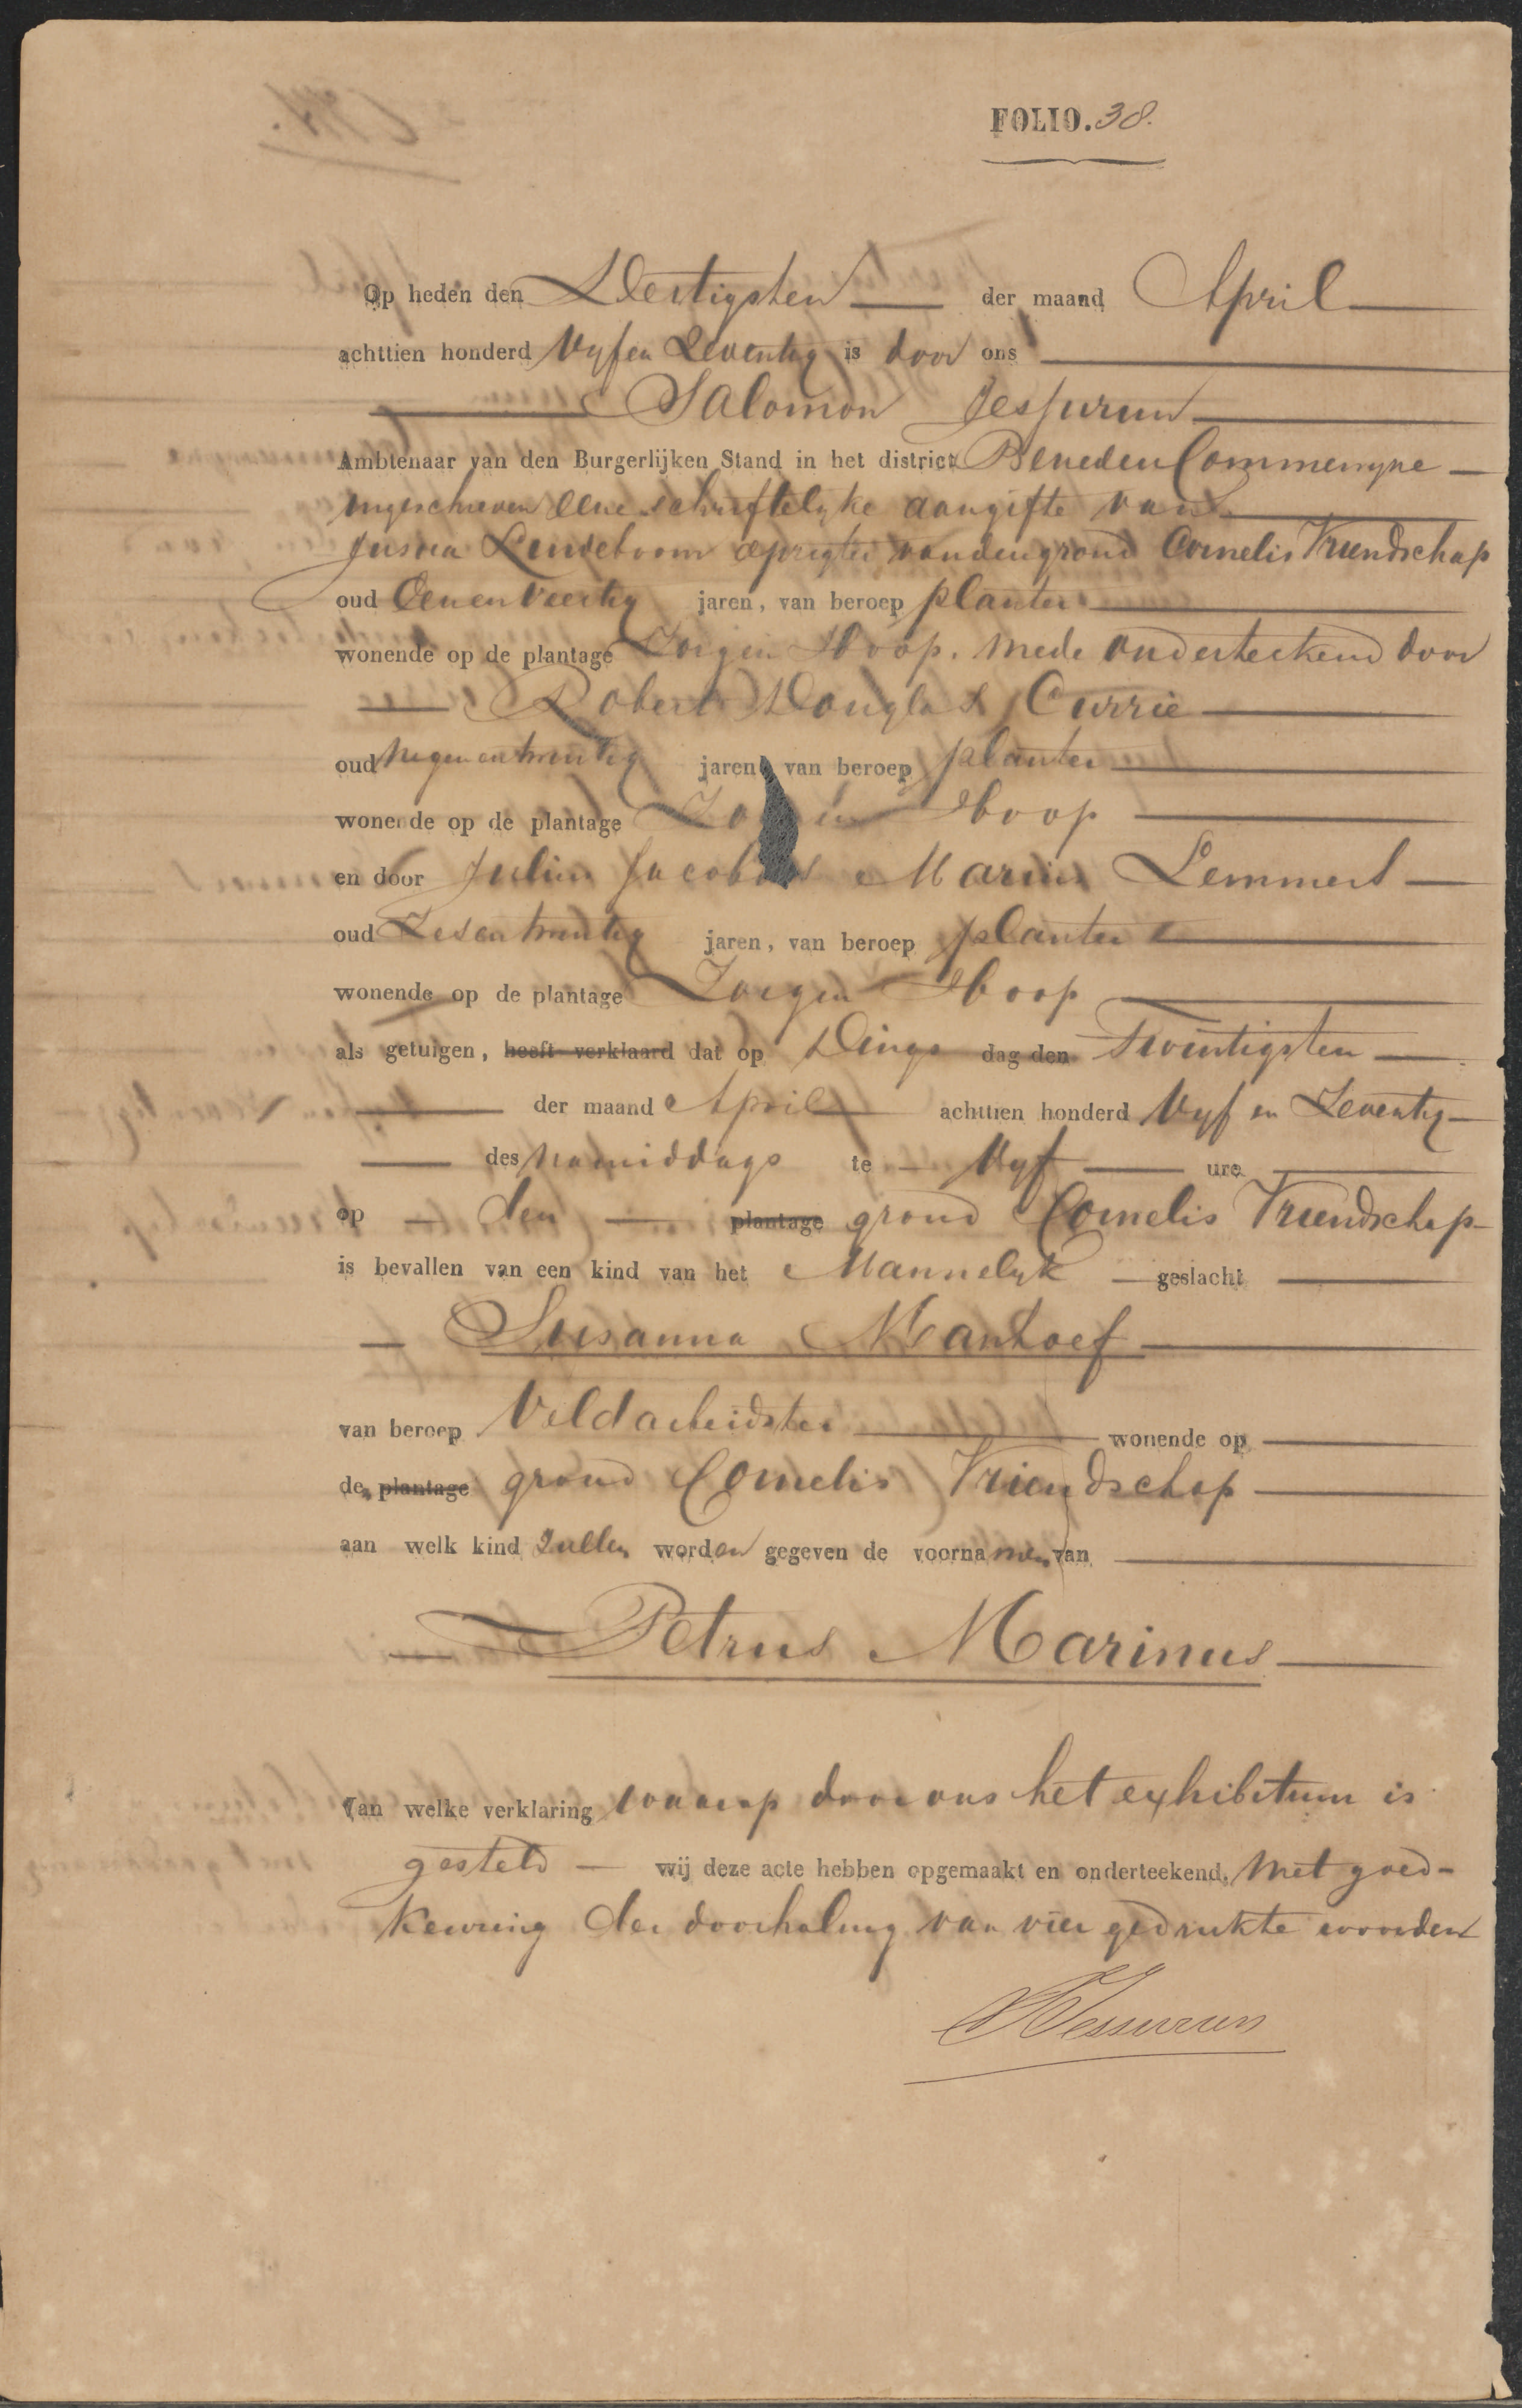 FOLIO. 38.
Op heden den Dertigsten der maand April
achttien honderd Vyf en Zeventig is door ons
Salomon Jessurun
Ambtenaar van den Burgerlijken Stand in het district Beneden Commewyne
ingeschreven eene schriftelyke aangifte van
Lindeboom van den grond Cornelis Vriendschap
oud Eenenveertig jaren, van beroep planter
wonende op de plantage Zorg en Hoop. mede onderteekend door
Robert Douglas Currie
oud Negenentwintig jaren, van beroep planter
wonende op de plantage Zorg en Hoop
en door Julius Jacobus Marius Lemmers
oud Zesentwintig jaren, van beroep planter
wonende op de plantage Zorg en Hoop
als getuigen, heeft verklaard dat op Dings dag den Twintigsten
der maand April achttien honderd Vyf en Zeventig
des namiddags te Vyf ure
op den plantage grond Cornelis Vriendschap
is bevallen van een kind van het Mannelyk geslacht
Susanna Manhoef
van beroep Veldarbeidster wonende op
de plantage grond Cornelis Vriendschap
aan welk kind zullen worden gegeven de voornamen van
Petrus Marinus
Van welke verklaring waarop door ons het exhibitum is
gesteld wij deze acte hebben opgemaakt en onderteekend, met goed-
keuring der doorhaling van vier gedrukte woorden
SJessurun